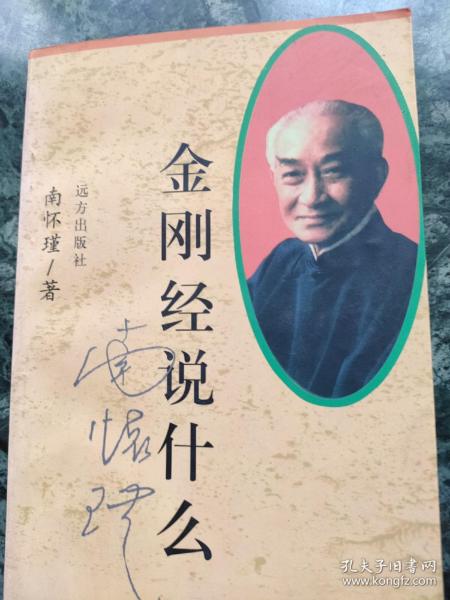 金刚经说什么
远方出版社
南怀瑾/著
南怀瑾
孔夫子旧书网
www.kongfz.com